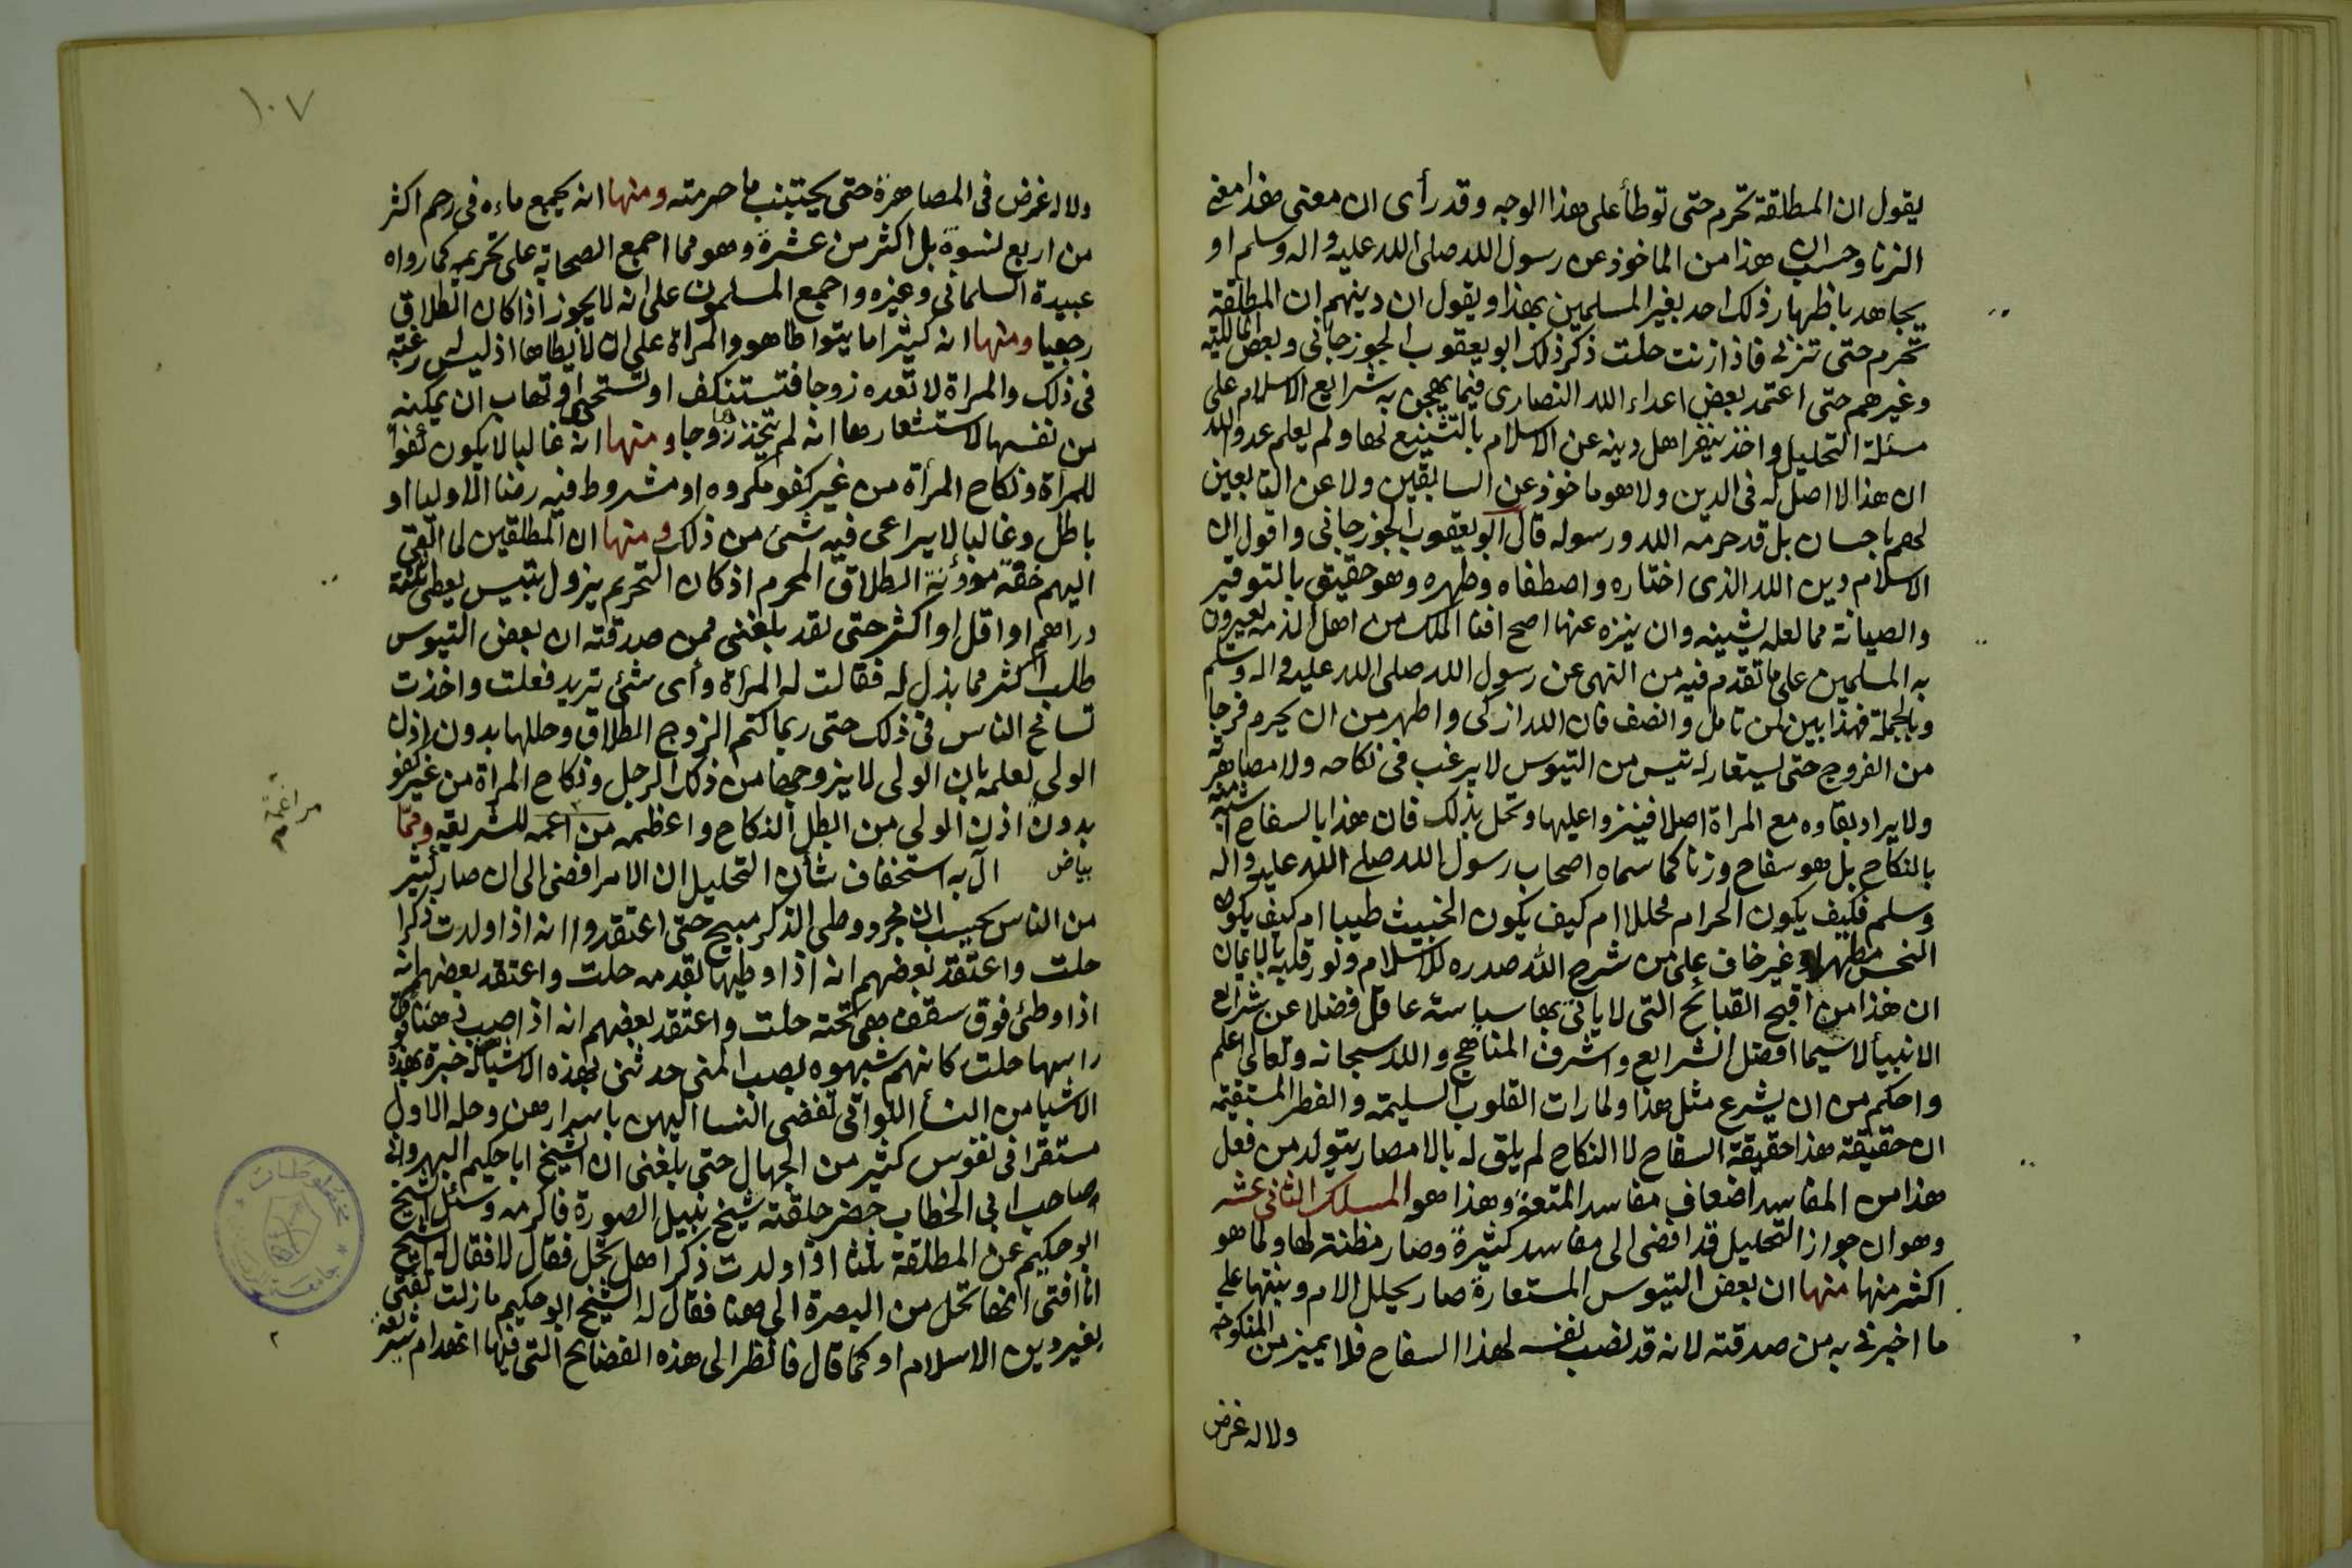 يقول ان المطلقة تحرم حتى توطأ على هذا الوجه وقد رأى ان معنى هذا معنى
الزنا وحسب ان هذا من الماخوذ عن رسول الله صلى الله عليه واله وسلم او
يجاهد باظهار ذلك احد بغير المسلمين بهذا ويقول ان دينهم ان المطلقة
تحرم حتى تزنى فاذا زنت حلت ذكر ذلك ابو يعقوب الجوزجانى وبعض المالكية
وغيرهم حتى اعتمد بعض اعداء الله النصارى فيما يهجن به شرايع الاسلام على
مسئلة التحليل واخذ ينفر اهل دينه عن الاسلام بالتشنيع لها ولم يعلم عدو الله
ان هذا لا اصل له فى الدين ولا هو ماخوذ عن السابقين ولا عن التابعين
لهم باحسان بل قد حرمه الله ورسوله قال ابو يعقوب الجوزجانى واقول ان
الاسلام دين الله الذى اختاره واصطفاه وطهره وهو حقيق بالتوقير
والصيانة مما لعله يشينه وان ينزه عنها اصح افنا الملك من اهل الذمه يعيرون
به المسلمين على ما تقدم فيه من النهى عن رسول الله صلى الله عليه واله وسلم
وبالجملة فهذا بين لمن تامل وانصف فان الله ازكى واطهر من ان يحرم فرجا
من الفروج حتى يستعار له تيس من التيوس لا يرغب فى نكاحه ولا مصاهرته
ولا يراد بقاوه مع المراة اصلا فينزوا عليها وتحل بذلك فان هذا بالسفاح اشبه منه
بالنكاح بل هو سفاح وزنا كما سماه اصحاب رسول الله صلى الله عليه واله
وسلم فكيف يكون الحرام محللا ام كيف يكون الخبيث طيبا ام كيف يكون
النجس مطهرا وغير خاف على من شرح الله صدره للاسلام ونور قلبه بالايمان
ان هذا من اقبح القبائح التى لا ياتى بها سياسة عاقل فضلا عن شرائع
الانبيأ لا سيما افضل الشرايع واشرف المناهج والله سبحانه وتعالى اعلم
واحكم من ان يشرع مثل هذا ولما رات القلوب السليمة والفطر المستقيمة
ان حقيقة هذا حقيقة السفاح لا النكاح لم يلق له بالا فصار يتولد من فعل
هذا من المفاسد اضعاف مفاسد المتعة وهذا هو المسلك الثانى عشر
وهو ان جواز التحليل قد افضى الى مفاسد كثيرة وصار مظنة لها ولما هو
اكثر منها منها ان بعض التيوس المستعارة صار يحلل الام وبنتها على
ما اخبرنى به من صدقته لانه قد نصب نفسه لهذا السفاح فلا يميز من المنكوحه
ولا له غرض
١٠٧
ولا له غرض فى المصاهرة حتى يجتنب ما حرمته ومنها انه يجمع ماءه فى رحم اكثر
من اربع نسوة بل اكثر من عشرة وهو مما اجمع الصحابة على تحريمه كما رواه
عبيدة السلمانى وغيره واجمع المسلمون على انه لا يجوز اذا كان الطلاق
رجعيا ومنها انه كثيرا ما يتواطا هو والمراة على ان لا يطاها اذ ليس له رغبة
فى ذلك والمراة لا تعده زوجا فتستنكف او تستحيى او تهاب ان تمكنه
من نفسها لاستشعارها انه لم يتخذ زوجا ومنها انه غالبا لا يكون كفوا
للمراة ونكاح المرأة من غير كفو مكروه او مشروط فيه رضا الاوليا او
باطل وغالبا لا يراعى فيه شئ من ذلك ومنها ان المطلقين لما القى
اليهم خفة مؤنة الطلاق المحرم اذ كان التحريم يزول بتيس يعطى ثلثة
دراهم او اقل او اكثر حتى لقد بلغنى ممن صدقته ان بعض التيوس
طلب اكثر مما بذل له فقالت له المرأة وأى شئ تريد فعلت واخذت
تسامح الناس فى ذلك حتى ربما كتم الزوج الطلاق وحللها بدون اذن
الولى لعلمه بان الولى لا يزوجها من ذلك الرجل ونكاح المراة من غير كفو
بدون اذن الولى من ابطل النكاح واعظمه من اعمه للشريعة ومما
مراغمة
بياض آل به استخفاف شأن التحليل ان الامر افضى الى ان صار كثير
من الناس يحسب ان مجرد وطى الذكر مبيح حتى اعتقدوا انه اذا ولدت ذكرا
حلت واعتقد بعضهم انه اذا وطيها بقدمه حلت واعتقد بعضهم انه
اذا وطئ فوق سقف هى تحته حلت واعتقد بعضهم انه اذا صب دهنا فوق
راسها حلت كانهم شبهوه بصب المنى حدثنى بهذه الاشيا من له خبرة بهذه
الاشيا من النسأ اللواتى تفضى النسا اليهن باسرارهن وحله للاول
مستقرا فى نفوس كثير من الجهال حتى بلغنى ان الشيخ ابا حكيم النهروانى
صاحب ابى الخطاب حضر حلقته شيخ نبيل الصورة فاكرمه وسئل الشيخ
ابو حكيم عن المطلقة ثلثا اذا ولدت ذكرا هل تحل فقال لا فقال له الشيخ
انا افتى انها تحل من البصرة الى هنا فقال له الشيخ ابو حكيم ما زلت تفتى
بغير دين الاسلام او كما قال فانظر الى هذه الفضائح التى فيها انهدام شريعة
مخطوطات